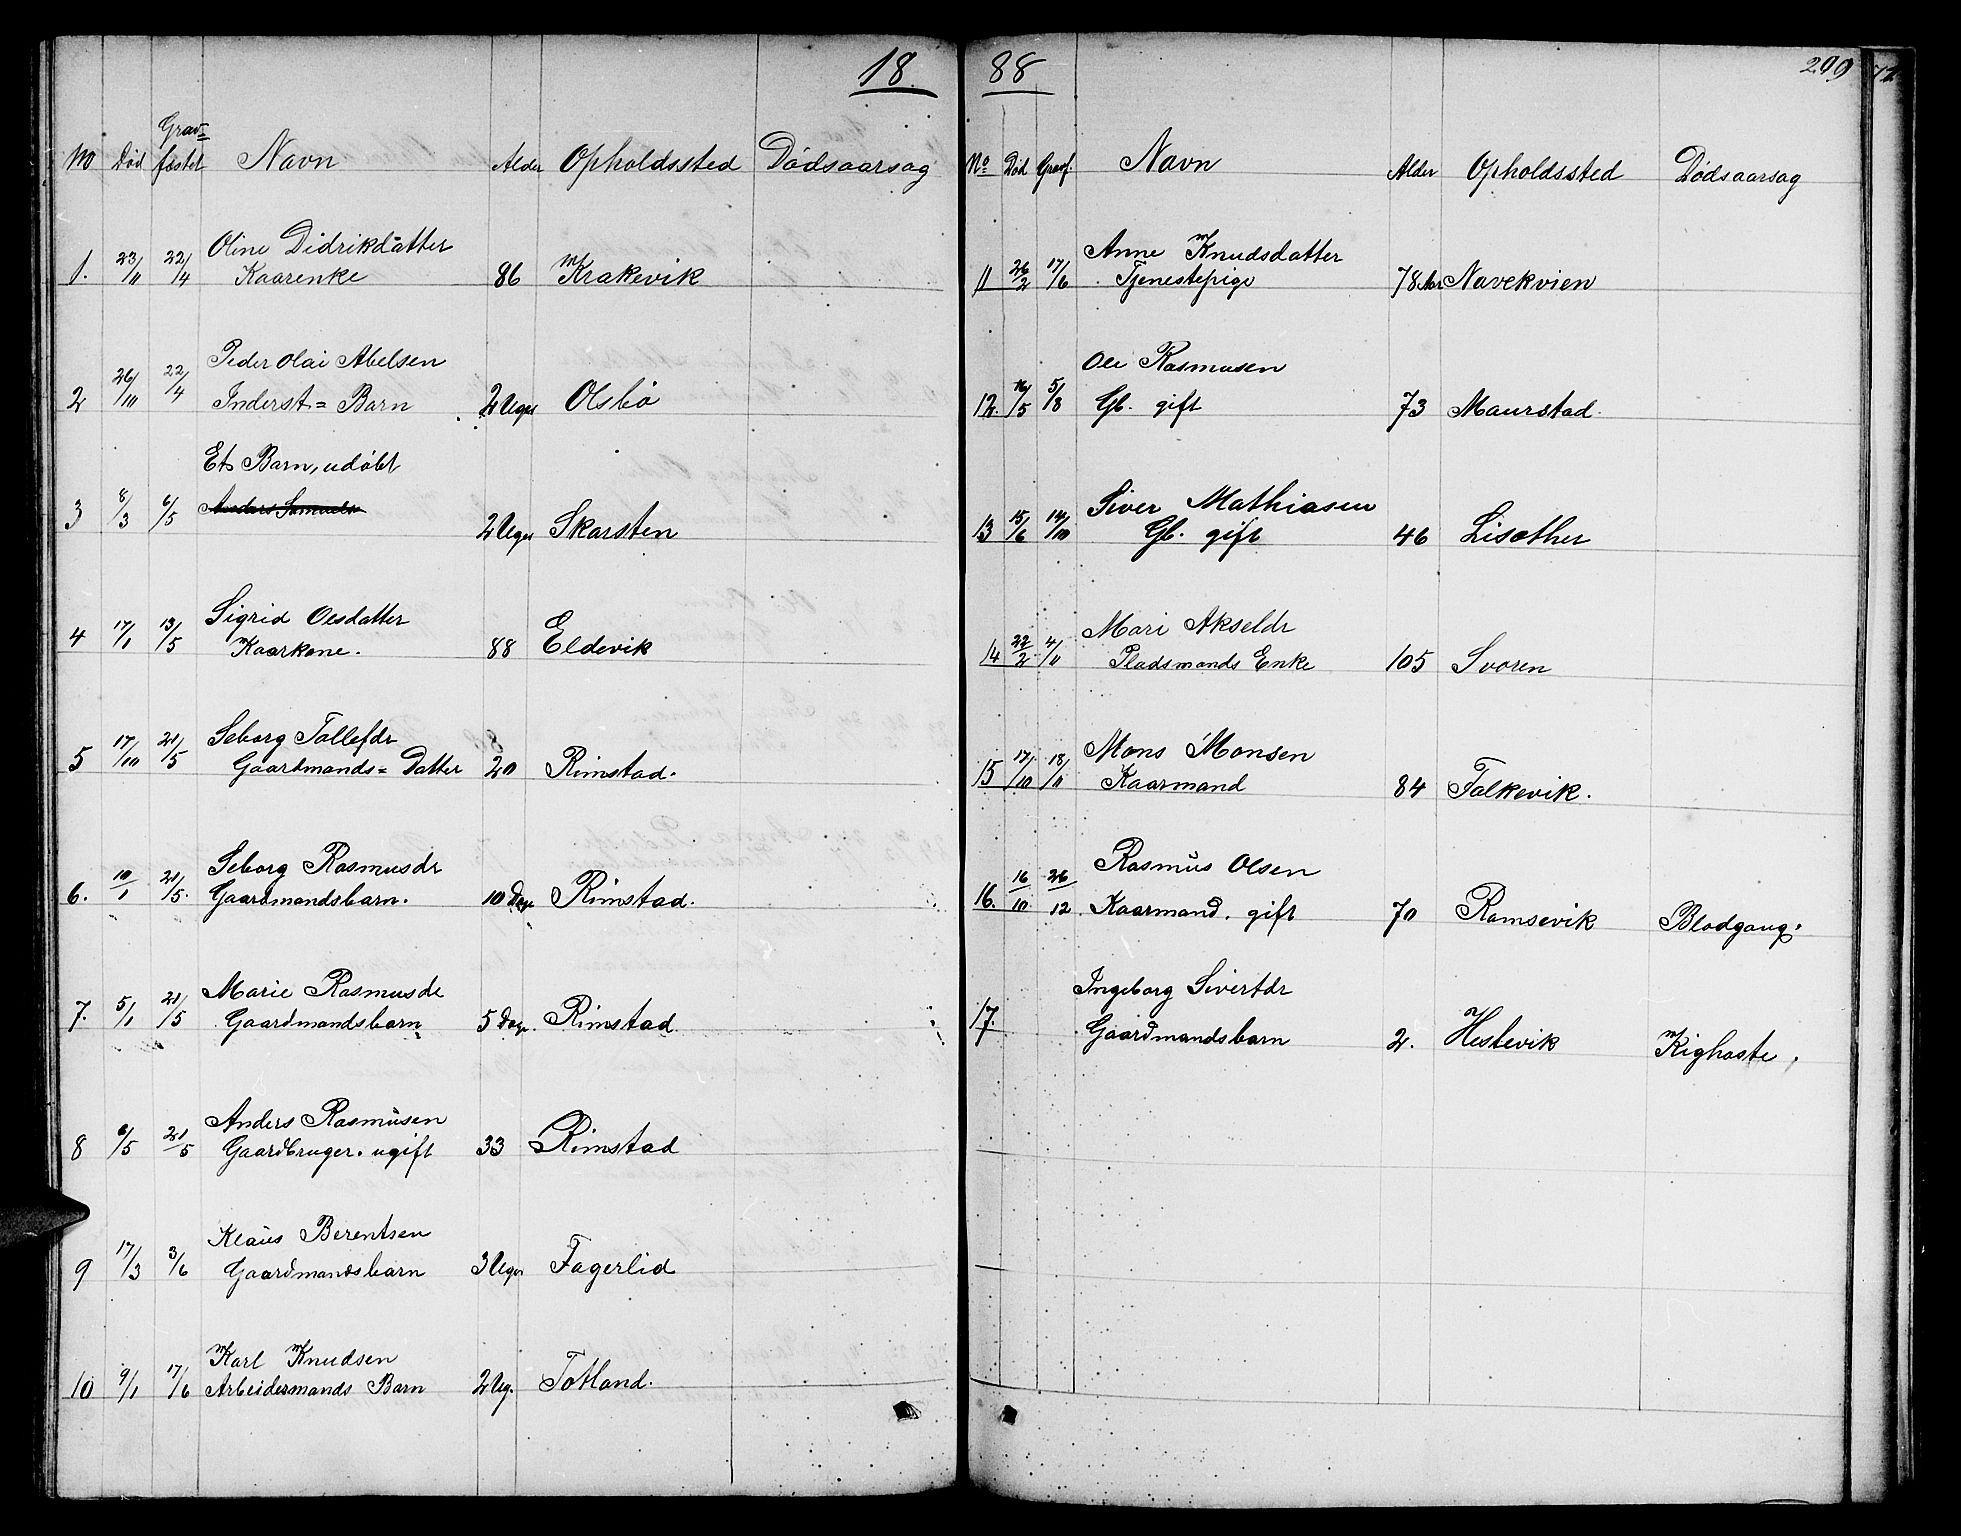 18
88
299
No Død Grav=fæstet Navn Alder Opholdssted Dødsaarsag
1. 23/11 22/4 Oline Didrikdatter
Kaarenke 86 Krakevik
2 26/10 22/4 Peder Olai Abelsen
Inderst= Barn 2 Uger Olsbø
Et Barn, udøbt
3 8/3 6/5 Anders Samuels 2 Uger Skarsten
4 17/1 13/5 Sigrid Olsdatter
Kaarkone. 88 Eldevik
5 17/10 21/5 Seborg Tollefdr
Gaardmands= Datter 20 Rimstad.
6. 10/1 21/5. Seborg Rasmusdr
Gaardmandsbarn. 10 Dage Rimstad.
7. 5/1 21/5 Marie Rasmusdr
Gaardmandsbarn 5 Dage. Rimstad.
8 6/5 21/5 Anders Rasmusen
Gaardbruger. ugift 33 Rimstad
9 17/3 3/6 Klaus Berentsen
Gaardmandsbarn 3 Uger Fagerlid
10 9/1 17/6 Karl Knudsen
Arbeidermands Barn 2 Ug. Totland.
No Død Gravf. Navn Alder Opholdssted Dødsaarsag
11 26/2 17/6 Anne Knudsdatter
Tjenestepige 78 Aar Navekvien
12. 16/5 5/8 Ole Rasmusen
Gb. gift 73 Maurstad.
13 15/6 14/10 Siver Mathiasen
Gb. gift 46 Lisæther
14 22/2 4/11 Mari Akseldr
Pladsmands Enke 105 Svoren
15 17/10 18/11 Mons Monsen
Kaarmand 84 Falkevik.
16. 16/10 26/12 Rasmus Olsen
Kaarmand. gift 70 Ramsevik Blodgang.
17. Ingeborg Sivertdr
Gaardmandsbarn 2. Hestevik Kighoste.